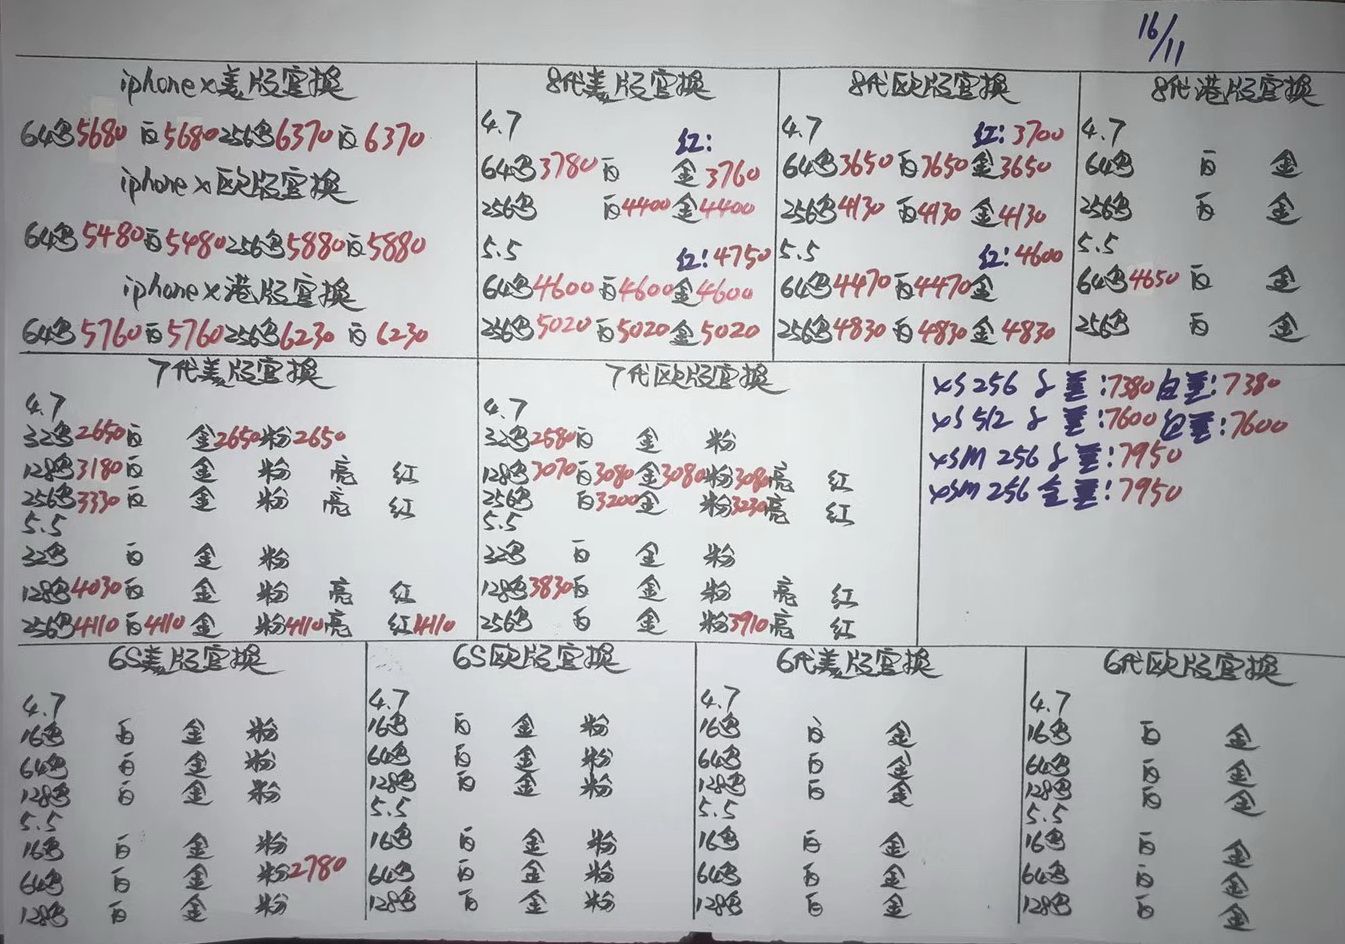 16/11
iphone x美版官换
64黑5680 白5680 256黑6370 白6370
iphone x欧版官换
64黑5480白5480 256黑5880白5880
iphone x港版官换
64黑5760白5760 256黑6230 白6230
8代美版官换
4.7 红:
64黑3780白 金3760
256黑 白4400金4400
5.5 红:4750
64黑4600白4600金4600
256黑5020 白5020金5020
8代欧版官换
4.7 红:3700
64黑3650白3650金3650
256黑4130 白4130 金4130
5.5 红:4600
64黑4470白4470金
256黑4830 白4830金4830
8代港版官换
4.7
64黑 白 金
256黑 白 金
5.5
64黑4650 白 金
256黑 白 金
7代美版官换
4.7
32黑2650白 金2650粉2650
128黑3180白 金 粉 亮 红
256黑3330白 金 粉 亮 红
5.5
32黑 白 金 粉
128黑4030白 金 粉 亮 红
256黑4110白4110 金 粉4110亮 红4110
7代欧版官换
4.7
32黑2580白 金 粉
128黑3070白3080金3080粉3080亮 红
256黑 白3200金 粉3230亮 红
5.5
32黑 白 金 粉
128黑3830白 金 粉 亮 红
256黑 白 金 粉3910亮 红
XS 256 :7380白 :7380
XS 512 :7600 :7600
XSM 256 :7950
XSM 256 金 :7950
6S美版官换
4.7
16黑 白 金 粉
64黑 白 金 粉
128黑 白 金 粉
5.5
16黑 白 金 粉
64黑 白 金 粉2780
128黑 白 金 粉
6S欧版官换
4.7
16黑 白 金 粉
64黑 白 金 粉
128黑 白 金 粉
5.5
16黑 白 金 粉
64黑 白 金 粉
128黑 白 金 粉
6代美版官换
4.7
16黑 白 金
64黑 白 金
128黑 白 金
5.5
16黑 白 金
64黑 白 金
128黑 白 金
6代欧版官换
4.7
16黑 白 金
64黑 白 金
128黑 白 金
5.5
16黑 白 金
64黑 白 金
128黑 白 金